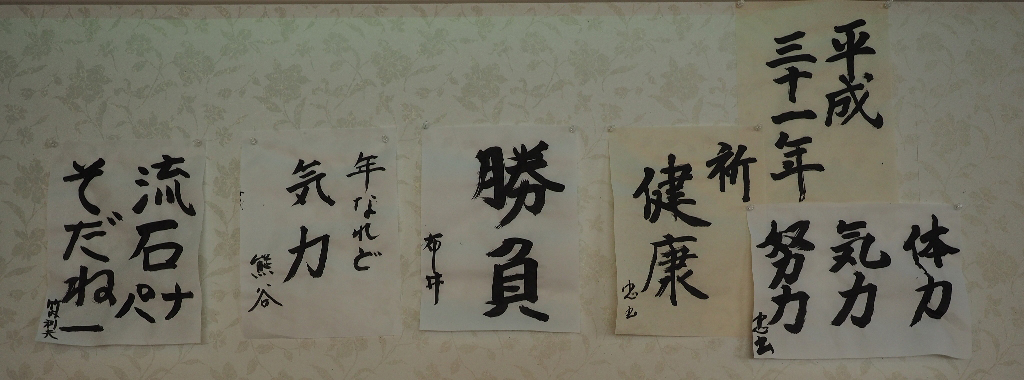 平成
三十一年
体力
気力
努力
忠雲
祈
健康
勝負
布井
年なれど
気力
熊谷
流石パナ
そだねー